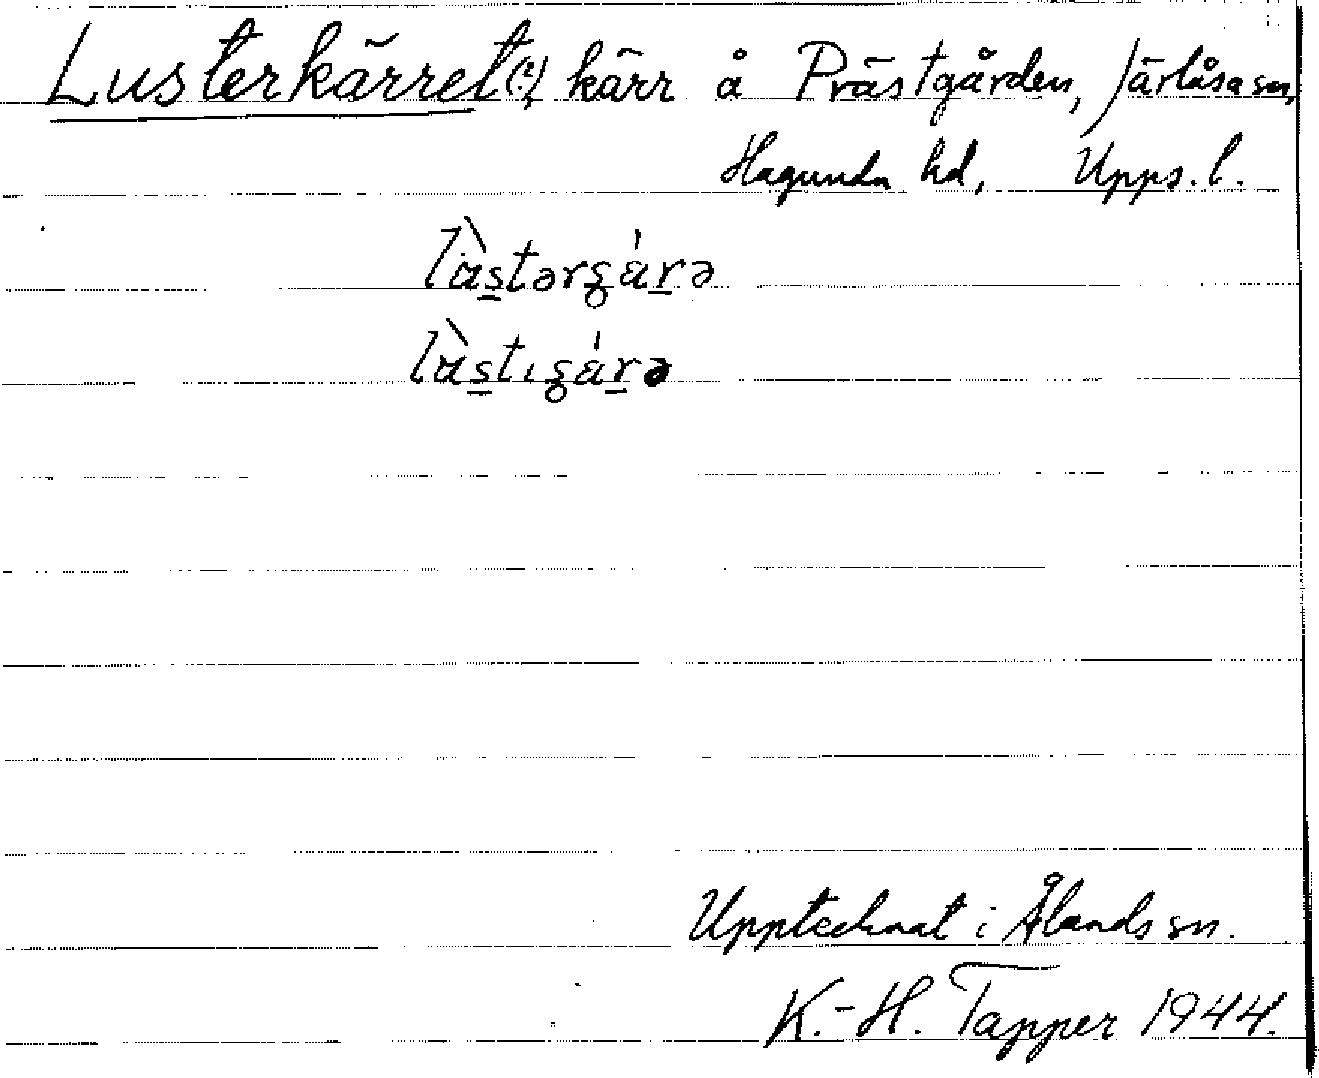 Lusterkärret(?), kärr å Prästgården, Järlåsa sn,
Hagunda hd, Upps. l.
Upptecknat i Ålands sn.
K.-H. Tapper 1944.